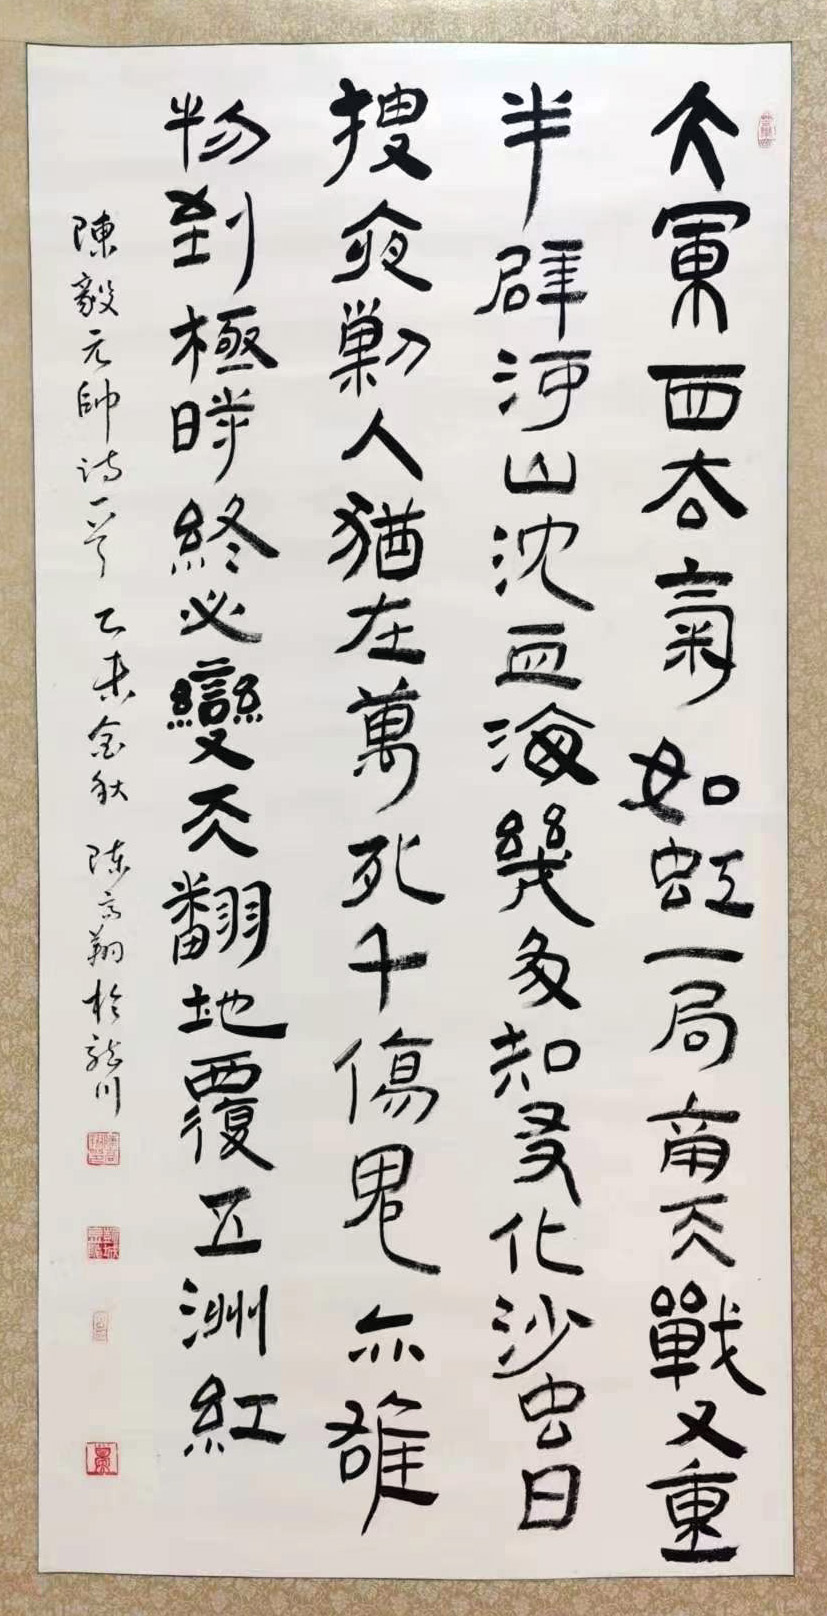 大軍西去氣如虹一局南天戰又重
半壁河山沈血海幾多知友化沙虫日
搜夜勦人猶在萬死千傷鬼亦雄
物到極時終必變天翻地覆五洲紅
陳毅元帥诗一首 乙未金秋 陈高翔於龙川